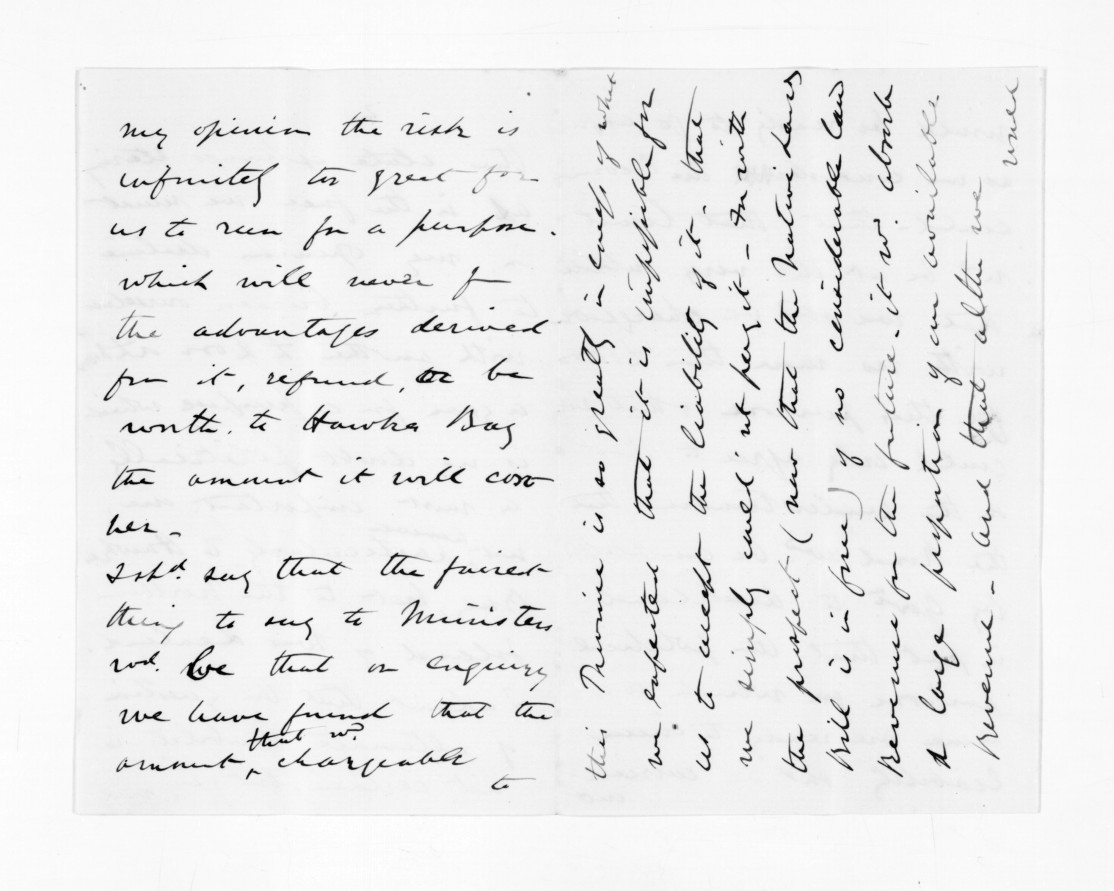 my opinion the risk is
infinitely too great for
us to run for a purpose.
which will never f
the advantages derived
from it, refund, or be
worth. to Hawkes Bay
the amount it will cost
her -
I shd. say that the fairest
thing to say to Ministers
wd. be that on enquiry
we have found that the
amount, that wd. chargeable
to
this Province is so greatly in excess of what
we expected that it is impossible for
us to accept the liability of it - that
we simply could not pay it - For with
the prospect (now that the Native Lands
Bill is in force) of no considerable land
Revenue for the future. it wd. absorb
a large proportion of our available
Revenue - and that altho' we were